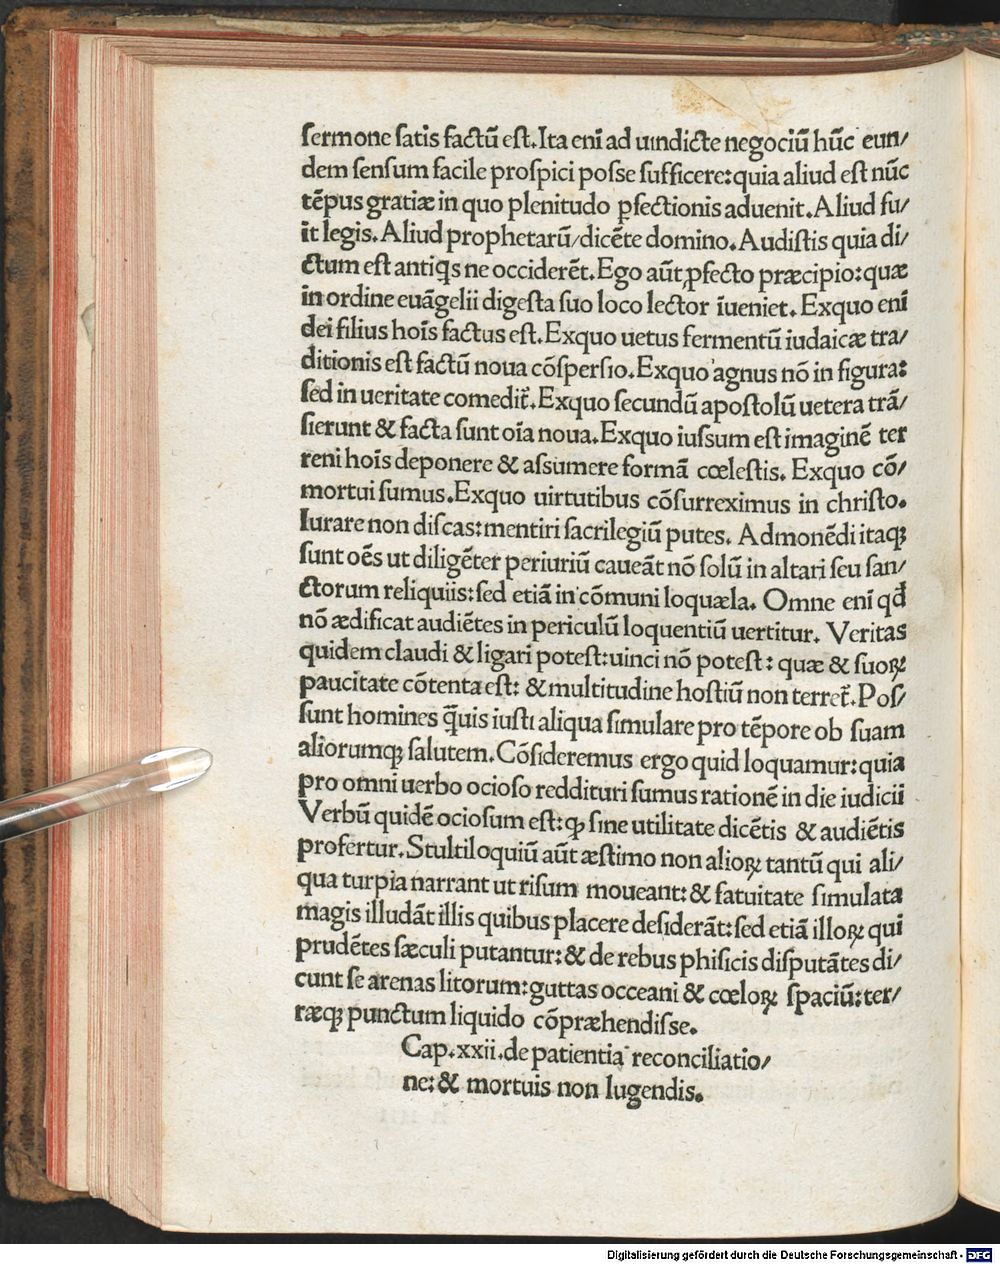 sermone satis factū est. Ita enī ad uindicte negociū hūc eun/
dem sensum facile prospici posse sufficere: quia aliud est nūc
tēpus gratiæ in quo plenitudo ꝑfectionis aduenit. Aliud fu/
it legis. Aliud prophetarū/dicēte domino. Audistis quia di/
ctum est antiq̄s ne occiderēt. Ego aūt ꝓfecto præcipio: quæ
in ordine euāgelii digesta suo loco lector īueniet. Exquo enī
dei filius hoīs factus est. Exquo uetus fermentū iudaicæ tra/
ditionis est factū noua cōspersio. Exquo agnus nō in figura:
sed in ueritate comedit̄. Exquo secundū apostolū uetera trā/
sierunt & facta sunt oīa noua. Exquo iussum est imaginē ter
reni hoīs deponere & assumere formā cœlestis. Exquo cō/
mortui sumus. Exquo uirtutibus cōsurreximus in christo.
Iurare non discas: mentiri sacrilegiū putes. Admonēdi itaqꝫ
sunt oēs ut diligēter periuriū caueāt nō solū in altari seu san/
ctorum reliquiis: sed etiā in cōmuni loquæla. Omne enī qđ
nō ædificat audiētes in periculū loquentiū uertitur. Veritas
quidem claudi & ligari potest: uinci nō potest: quæ & suoꝝ
paucitate cōtenta est: & multitudine hostiū non terret̄. Pos/
sunt homines q̄uis iusti aliqua simulare pro tēpore ob suam
aliorumqꝫ salutem. Cōsideremus ergo quid loquamur: quia
pro omni uerbo ocioso reddituri sumus rationē in die iudicii
Verbū quidē ociosum est: qꝫ sine utilitate dicētis & audiētis
profertur. Stultiloquiū aūt æstimo non alioꝝ tantū qui ali/
qua turpia narrant ut risum moueant: & fatuitate simulata
magis illudāt illis quibus placere desiderāt: sed etiā illoꝝ qui
prudētes sæculi putantur: & de rebus phisicis disputātes di/
cunt se arenas litorum: guttas occeani & cœloꝝ spaciū: ter/
ræqꝫ punctum liquido cōpræhendisse.
Cap. xxii. de patientia reconciliatio/
ne: & mortuis non lugendis.
Digitalisierung gefördert durch die Deutsche Forschungsgemeinschaft - DFG